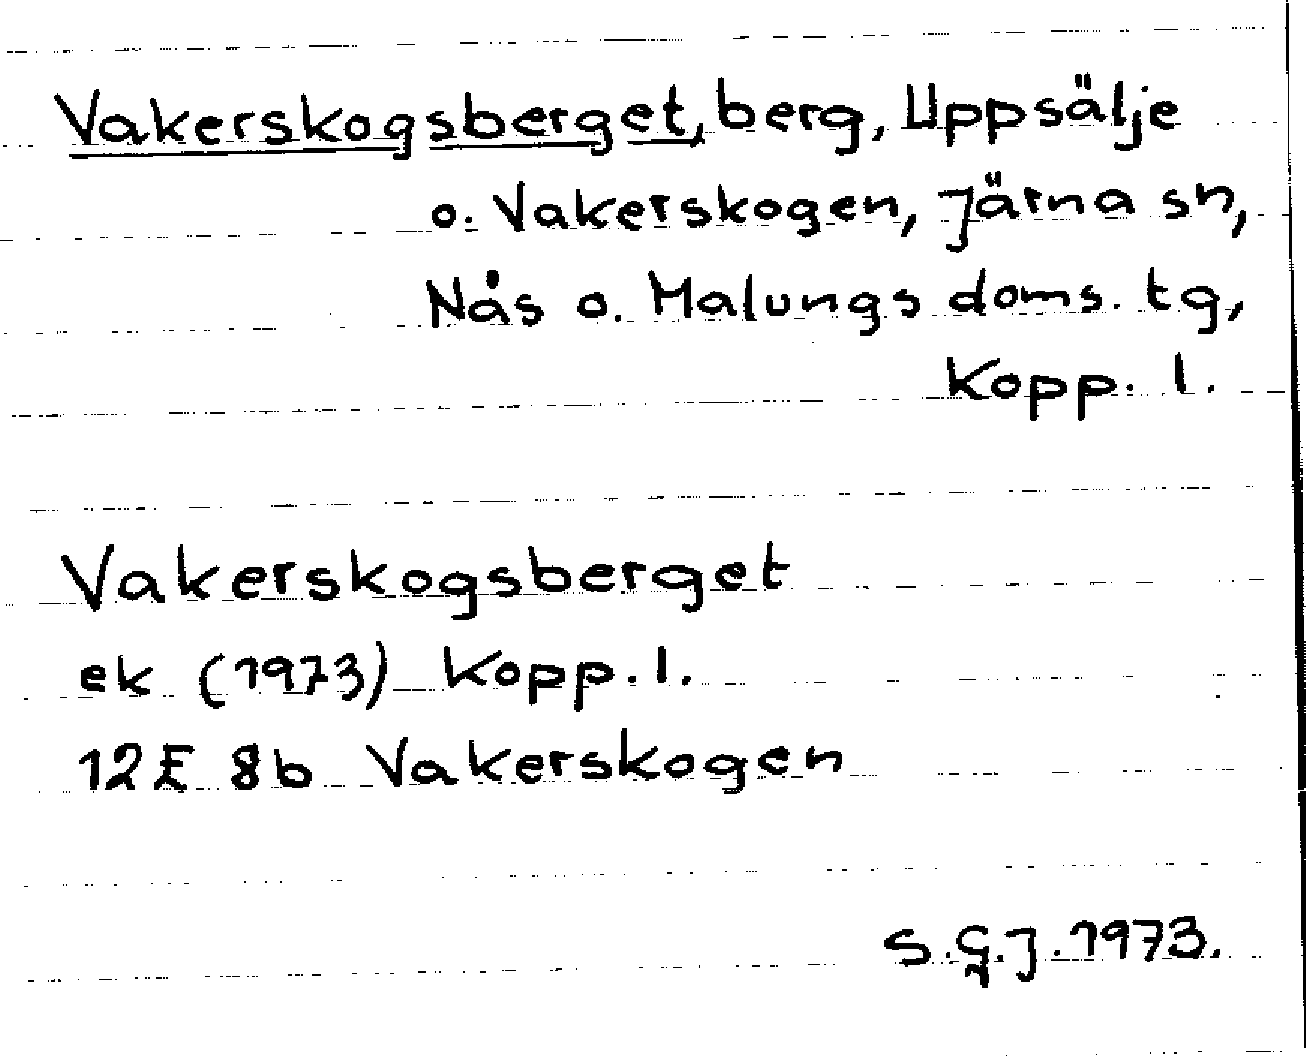 Vakerskogsberget, berg, Uppsälje
o. Vakerskogen, Järna sn,
Nås o. Malungs doms. tg,
Kopp. l.
Vakerskogsberget
ek (1973) Kopp. l.
12E 8b Vakerskogen
S.G.J. 1973.